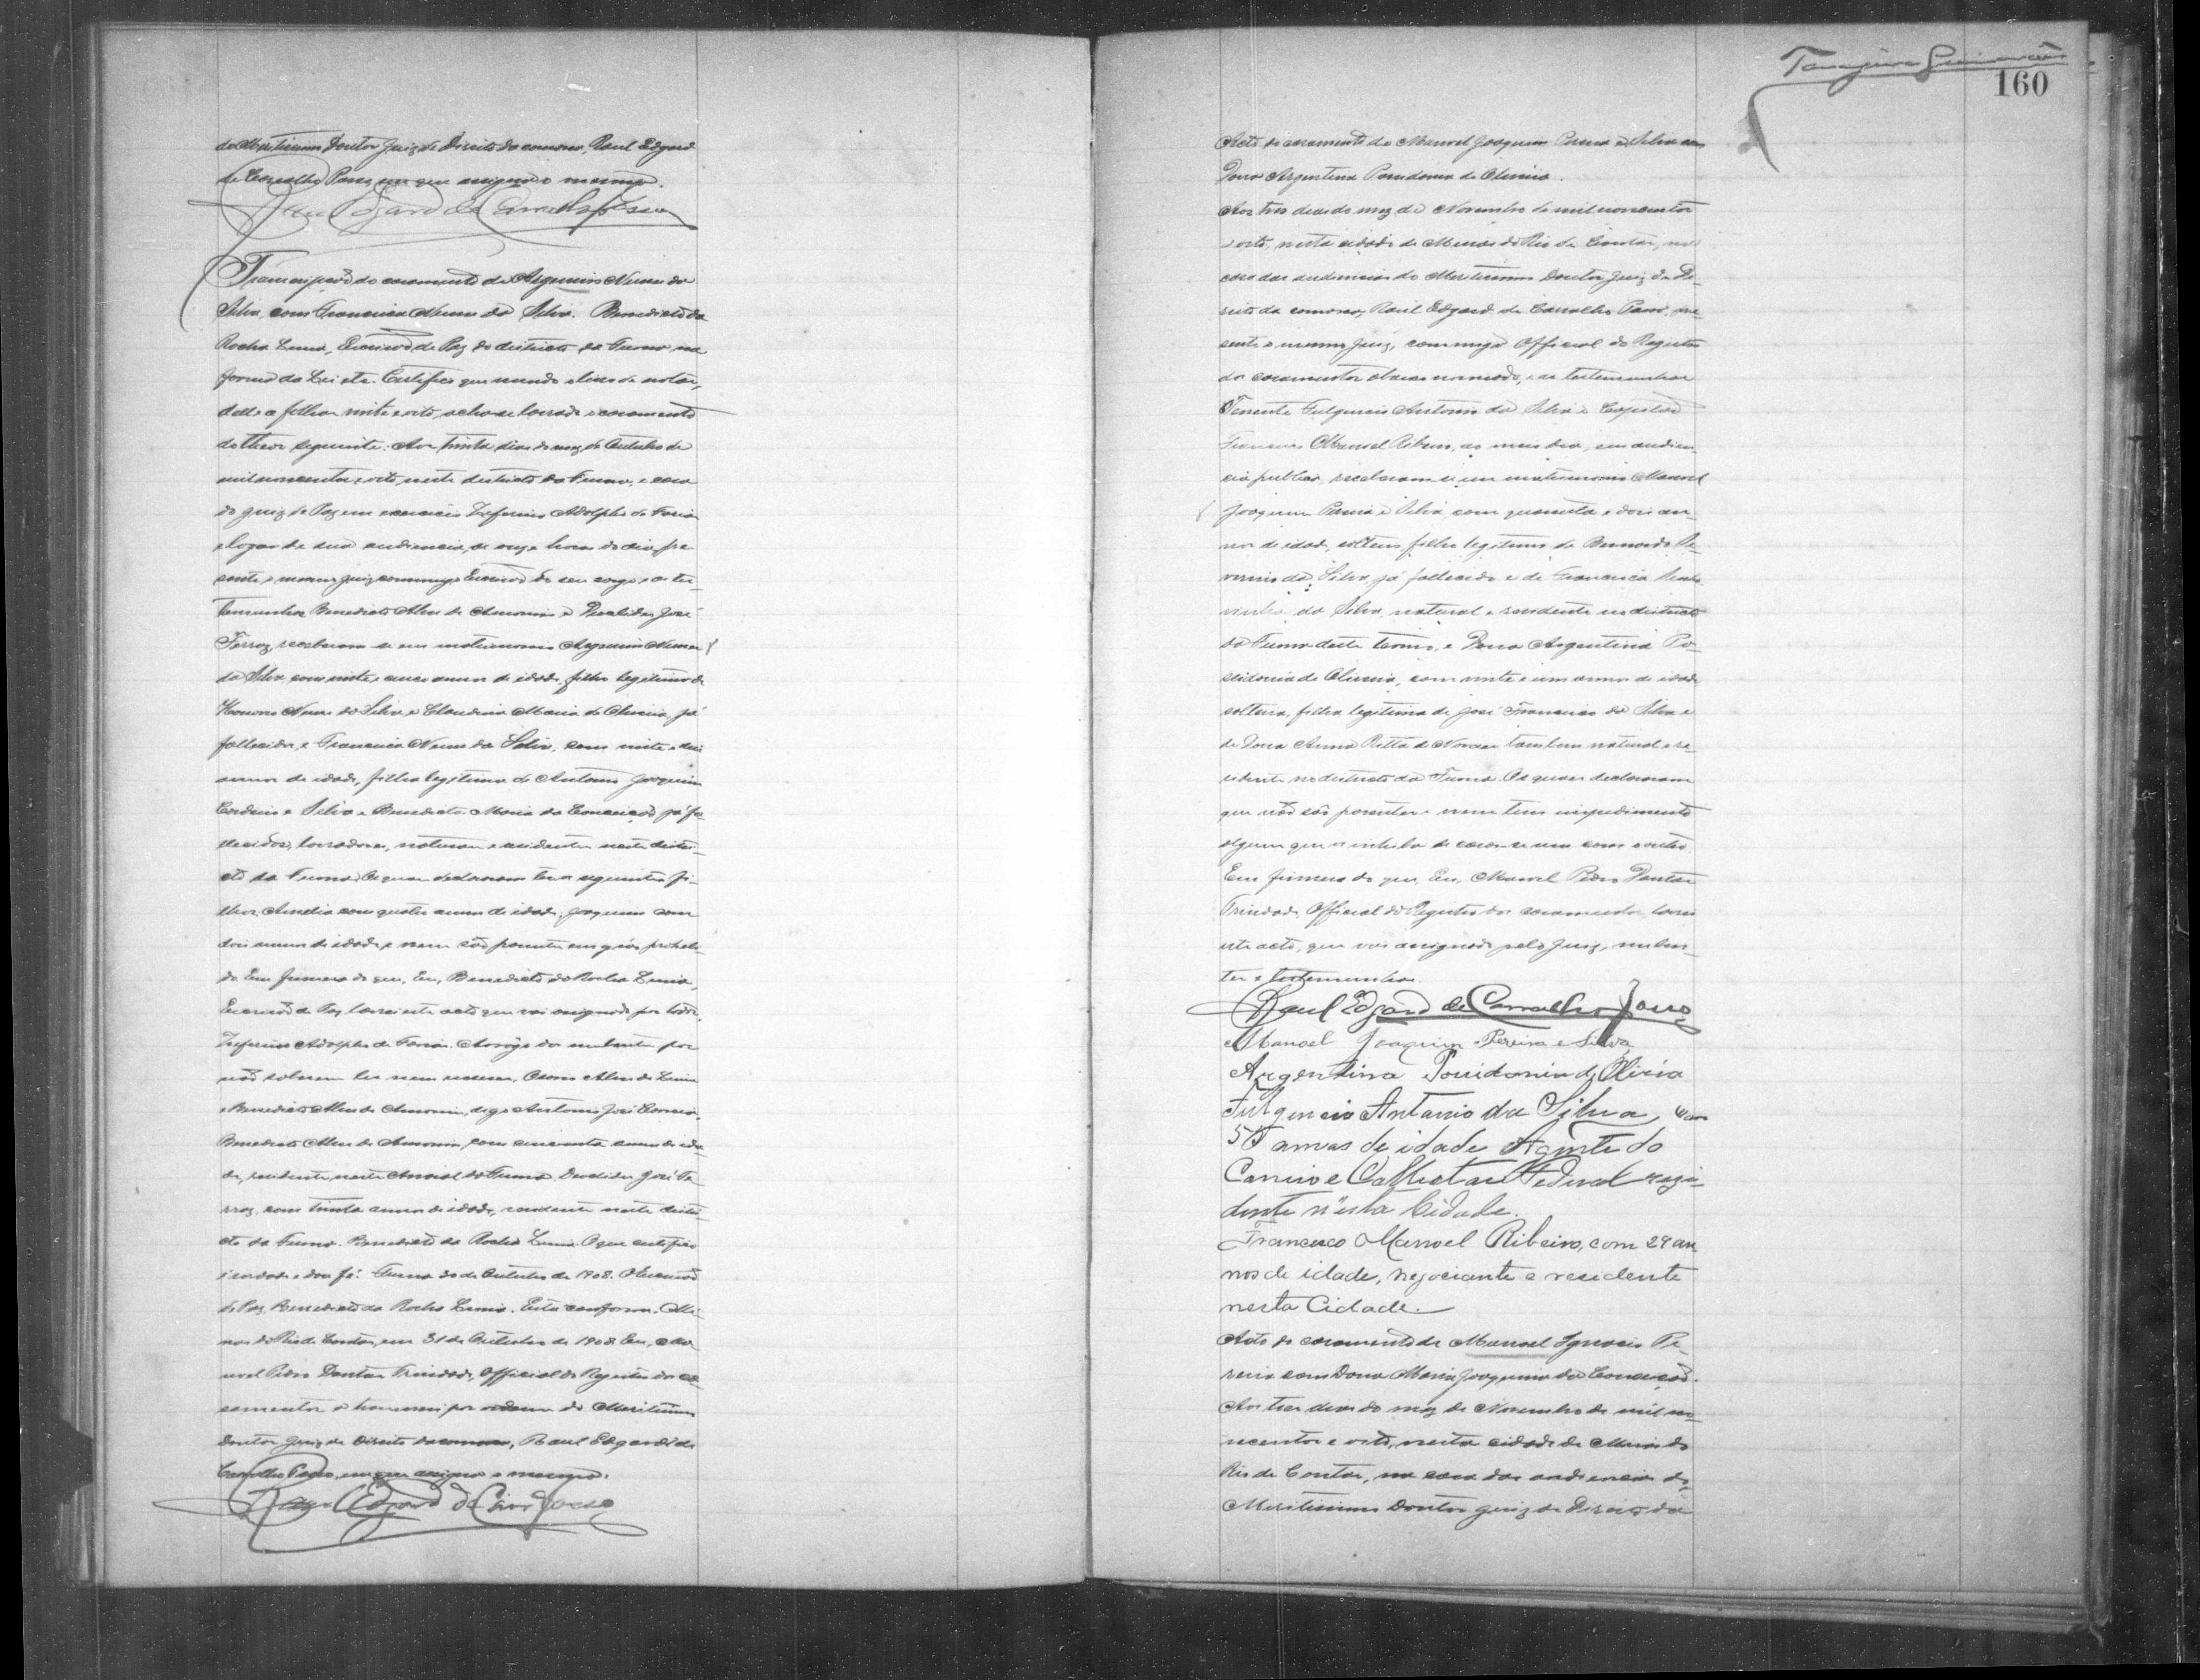 do Meritissimo Doutor Juiz de Direito da comarca, Raul Edgard
de Carvalho Passo, em que assigna o mesmo.
Raul Edgard de Carvalho Passo
Transcripção do casamento de Argemiro Nunes da
Silva com Francisca Nunes da Silva. Benedicto da
Rocha Lima, Escrivão de Paz do districto da Furna, na
forma da Lei etc. Certifico que revendo o livro de notas,
delle a folhas vinte e oito, acha-se lavrado o casamento
do theor seguinte: Aos trinta dias do mez de Outubro de
mil novecentos e oito, neste districto da Furna, e casa
do Juiz de Paz em exercicio Zeferino Adolpho de Faria
e logar de sua audiencia, as onze horas do dia, pre-
sente o mesmo Juiz commigo Escrivão do seu cargo e as tes-
temunhas Benedicto Alves de Amorim e José
Ferraz, receberam-se em matrimonio Argemiro Nunes
da Silva, com vinte e cinco annos de idade, filho legitimo de
Nunes da Silva e Claudina Maria de Oliveira, já
fallecidos, e Francisca Nunes da Silva, com vinte e dois
annos de idade, filha legitima de Antonio Joaquim
Cordeiro e Silva e Benedicta Maria da Conceição, já fa-
llecidos, lavradores, naturaes e residentes neste distri-
cto da Furna. Os quaes declararam ter os seguintes fi-
lhos, Amelia com quatro annos de idade, Joaquim com
dois annos de idade e nem são parentes em gráo prohibi-
do. Em firmeza do que, Eu, Benedicto da Rocha Lima,
Escrivão de Paz lavrei este acto que vai assignado por todos.
Zeferino Adolpho de Faria. A rogo dos nubentes por
não saberem ler nem escrever, Alves de Lima
e Benedicto Alves de Amorim, digo Antonio José
Benedicto Alves de Amorim, com cincoenta annos de ida-
de, residente neste Arraial da Furna. José Fe-
rraz, com trinta annos de idade, residente neste distri-
cto da Furna. Benedicto da Rocha Lima. O que certifico
é verdade e dou fé. Furna 30 de Outubro de 1908. O Escrivão
de Paz, Benedicto da Rocha Lima. Está conforme. Mi-
nas do Rio de Contas, em 31 de Outubro de 1908. Eu, Ma-
noel Pedro Dantas Trindade, Official do Registro dos ca-
samentos o transcrevi por ordem do Meritissimo
Doutor Juiz de Direito da comarca, Raul Edgard de
Carvalho Passo, em que assigna o mesmo.
Raul Edgard de Carv. Passo
160
Acto do casamento de Manoel Joaquim Pereira e Silva com
Dona Argentina Possidonia de Oliveira.
Aos tres dias do mez de Novembro de mil novecentos
e oito, nesta cidade de Minas do Rio de Contas, na
casa das audiencias do Meritissimo Doutor Juiz de Di-
reito da comarca, Raul Edgard de Carvalho Passo, pre-
sente o mesmo Juiz, commigo Official do Registro
dos casamentos abaixo nomeado, e as testemunhas
Tenente Fulgencio Antonio da Silva e Capitão
Francisco Manoel Ribeiro, ao meio dia, em audien-
cia publica, receberam-se em matrimonio Manoel
Joaquim Pereira e Silva, com quarenta e dois an-
nos de idade, solteiro, filho legitimo de Bernardo
da Silva, já fallecido e de Francisca
da Silva, natural e residente no districto
da Furna deste termo, e Dona Argentina Po-
ssidonia de Oliveira, com vinte e um annos de idade,
solteira, filha legitima de José Francisco da Silva e
de Dona Anna Ritta de Novaes tambem natural e re-
sidente no districto da Furna. Os quaes declararam
que não são parentes e nem tem impedimento
algum que os inhiba de casar-se um com o outro.
Em firmeza do que, Eu, Manoel Pedro Dantas
Trindade, Official do Registro dos casamentos lavrei
este acto, que vai assignado pelo Juiz, nuben-
tes e testemunhas.
Raul Edgard de Carvalho Passo
Manoel Joaquim Pereira e Silva
Argentina Possidonia d Oliveira
Fulgencio Antonio da Silva, com
50 annos de idade Agente do
Correio e Collector Federal rezi-
dente n'esta Cidade.
Francisco Manoel Ribeiro, com 29 an
nos de idade, negociante e residente
nesta Cidade.
Acto do casamento de Manoel Ignacio Pe-
reira com Dona Maria Joaquina da Conceição.
Aos tres dias do mez de Novembro de mil no-
vecentos e oito, nesta cidade de Minas do
Rio de Contas, na casa das audiencias do
Meritissimo Doutor Juiz de Direito da